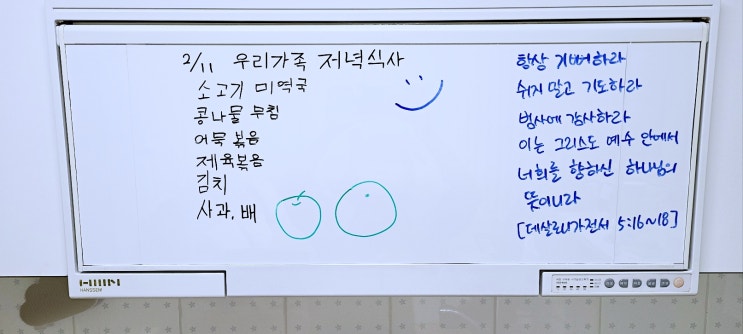 2/11 우리가족 저녁식사
소고기 미역국
콩나물 무침
어묵 볶음
제육볶음
김치
사과, 배
항상 기뻐하라
쉬지 말고 기도하라
범사에 감사하라
이는 그리스도 예수 안에서
너희를 향하신 하나님의
뜻이니라
[데살로니가전서 5:16~18]
HANSSEM